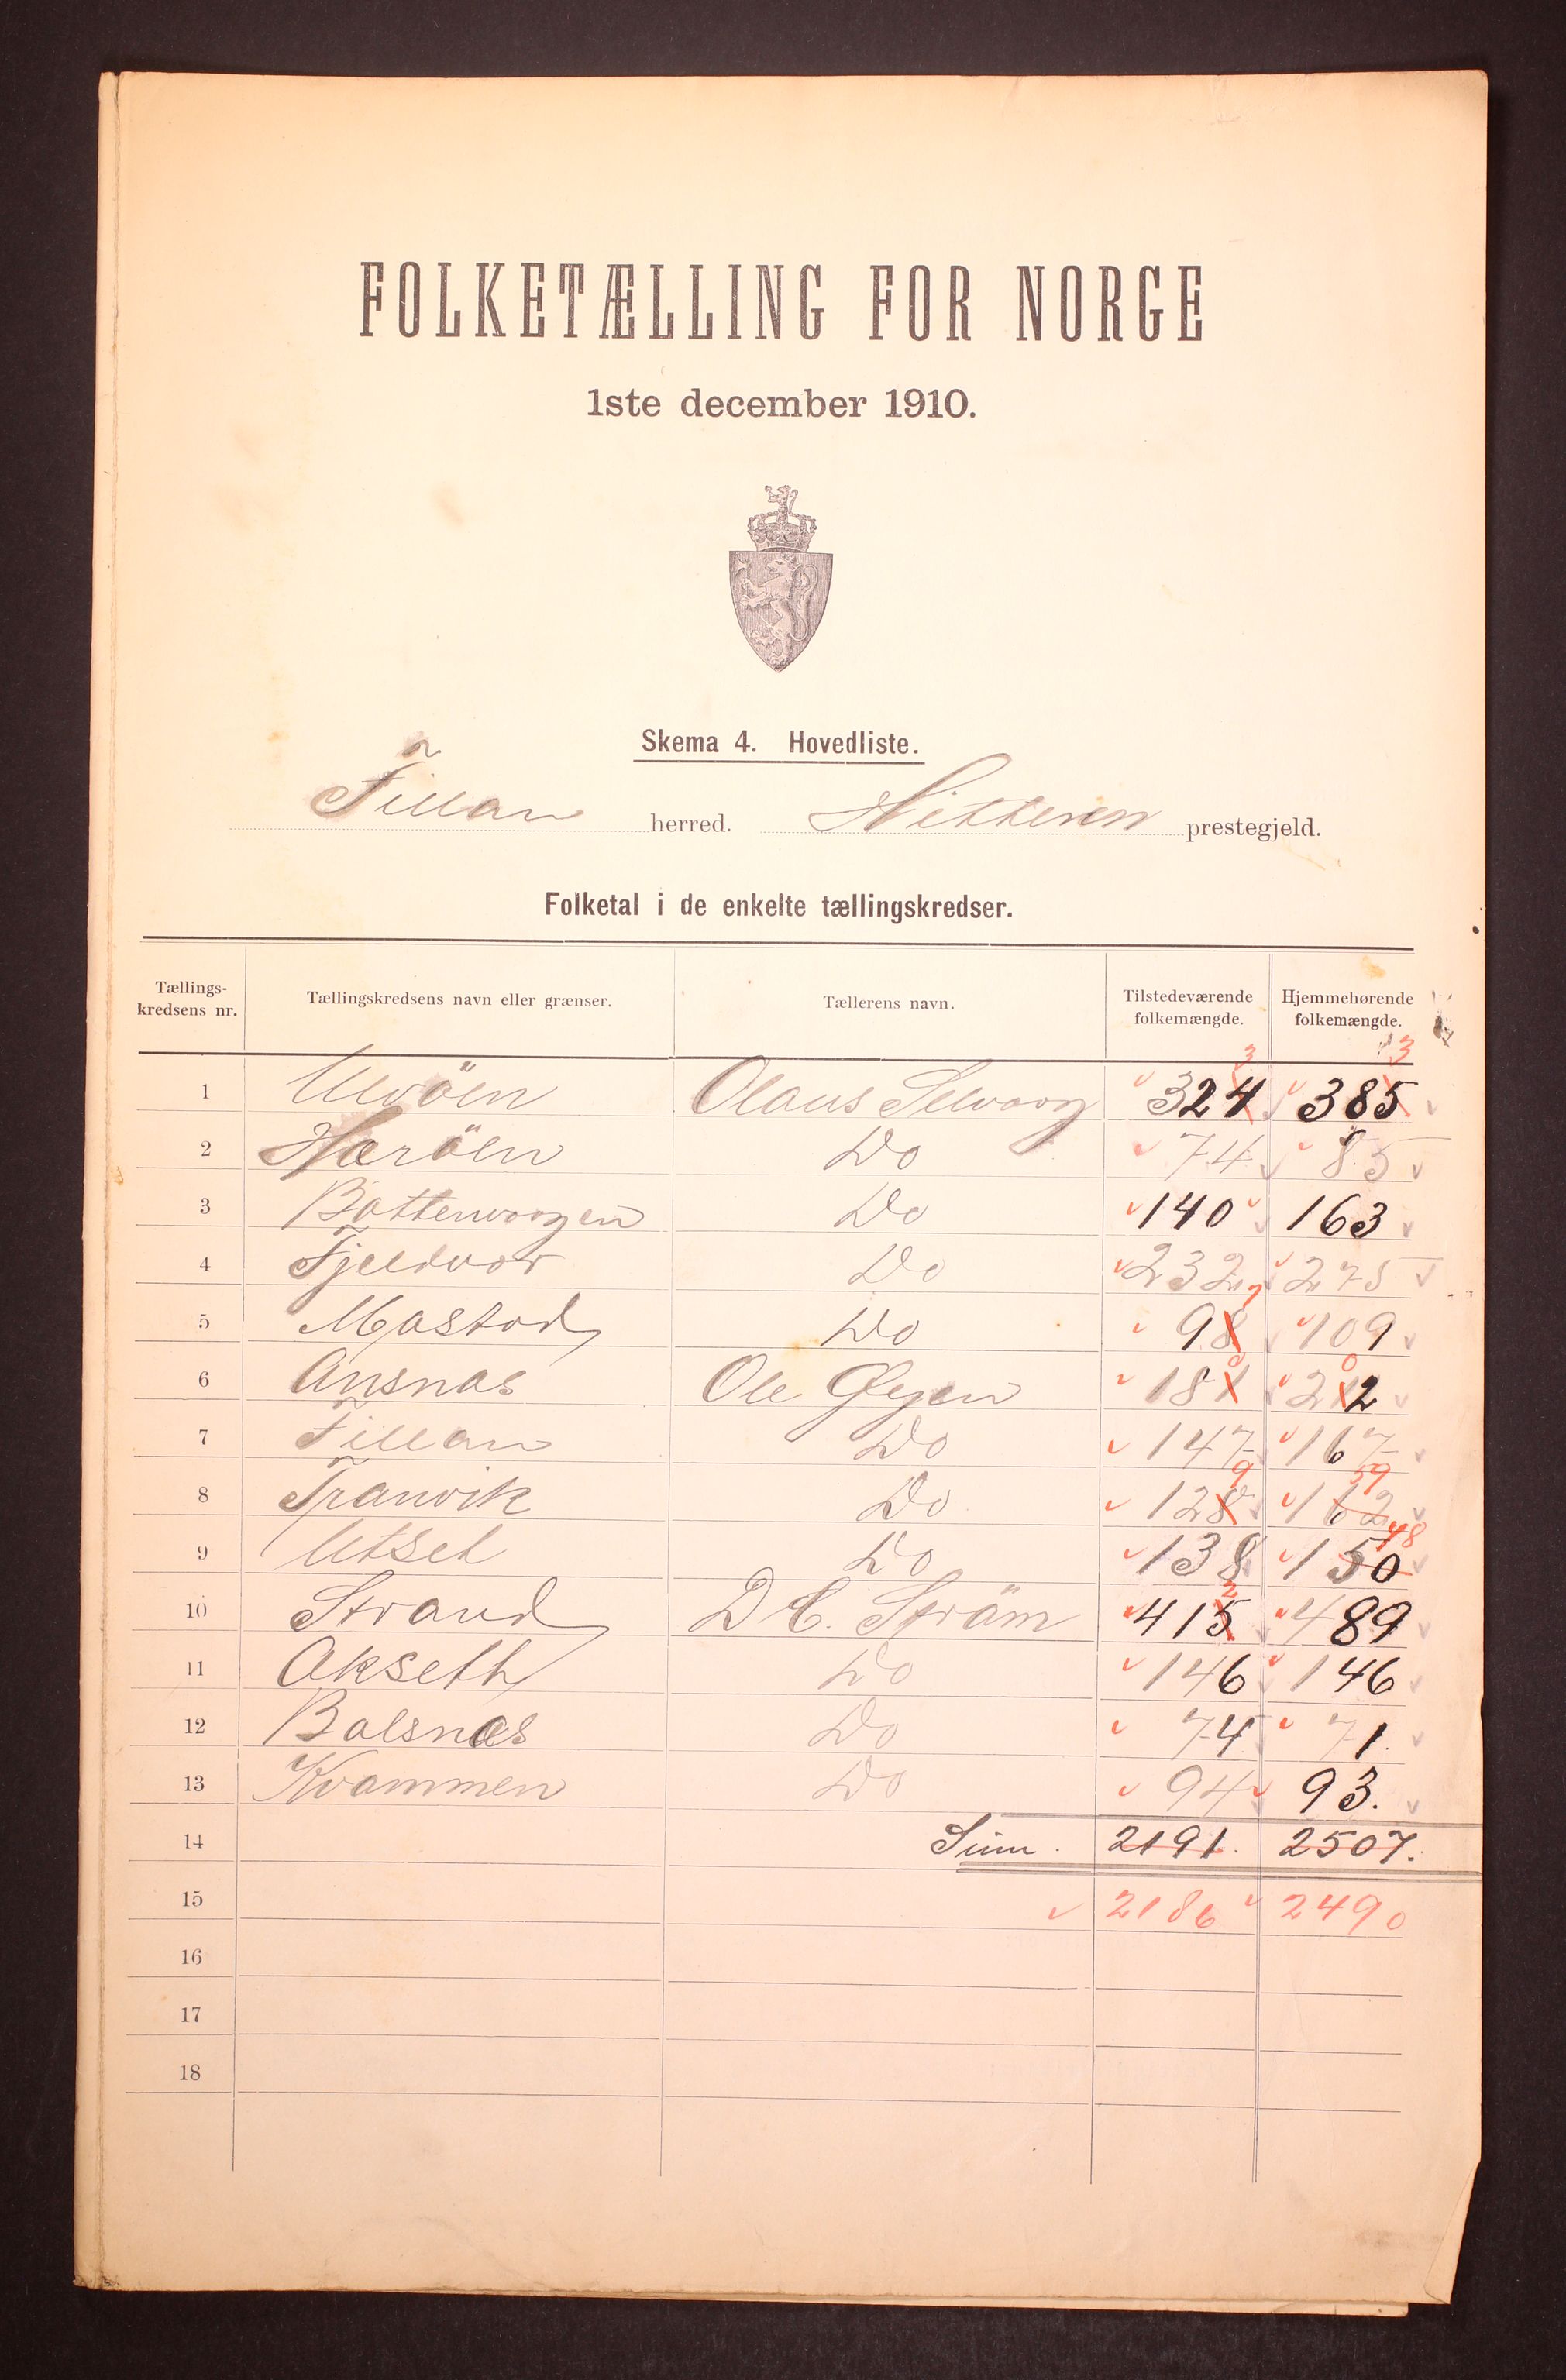 FOLKETÆLLING FOR NORGE
1ste december 1910.
Skema 4. Hovedliste.
Fillan herred. Hitteren prestegjeld.
Folketal i de enkelte tællingskredser.
Tællings-kredsens nr. Tællingskredsens navn eller grænser. Tællerens navn. Tilstedeværende folkemængde. Hjemmehørende folkemængde.
3 3
1 Ulvöen Olaus Selvaag 324 385
2 Hæröen Do 74 85
3 Battenvaagen Do 140 163
4 Fjeldvær Do 232 275
7
5 Mastad Do 98 109
0 0
6 Ansnæs Ole Øyen 181 212
7 Fillan Do 147 167
9 59
8 Tranvik Do 128 162
48
9 Utset Do 138 150
2
10 Strand D C. Ström 415 489
11 Akseth Do 146 146
12 Balsnæs Do 74 71.
13 Kvammen Do 94 93.
14 Sum. 2191. 2507.
15 2186 2490
16
17
18